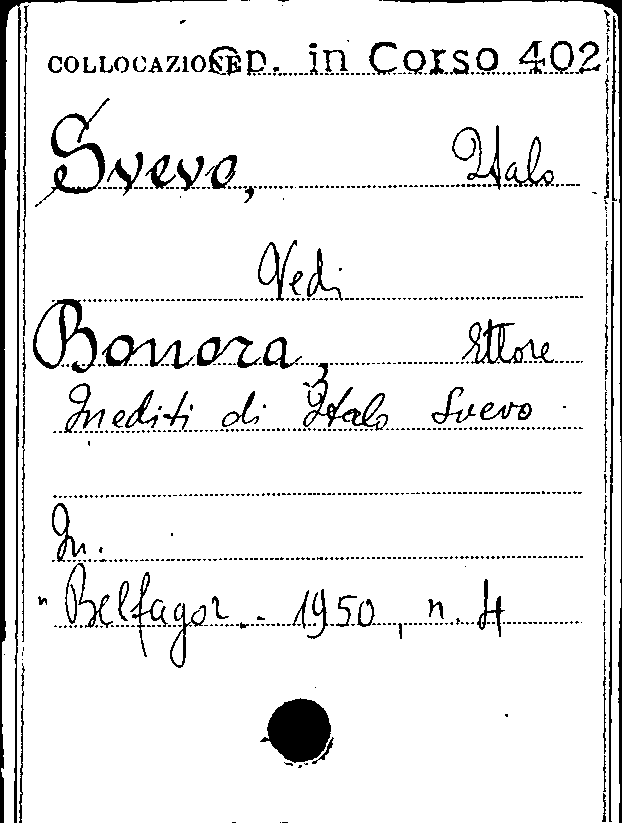 COLLOCAZIONE Op. in Corso 402
Svevo, Italo
Vedi
Bonora, Ettore
Inediti di Italo Svevo
In.
"Belfagor.. 1950, n. 4